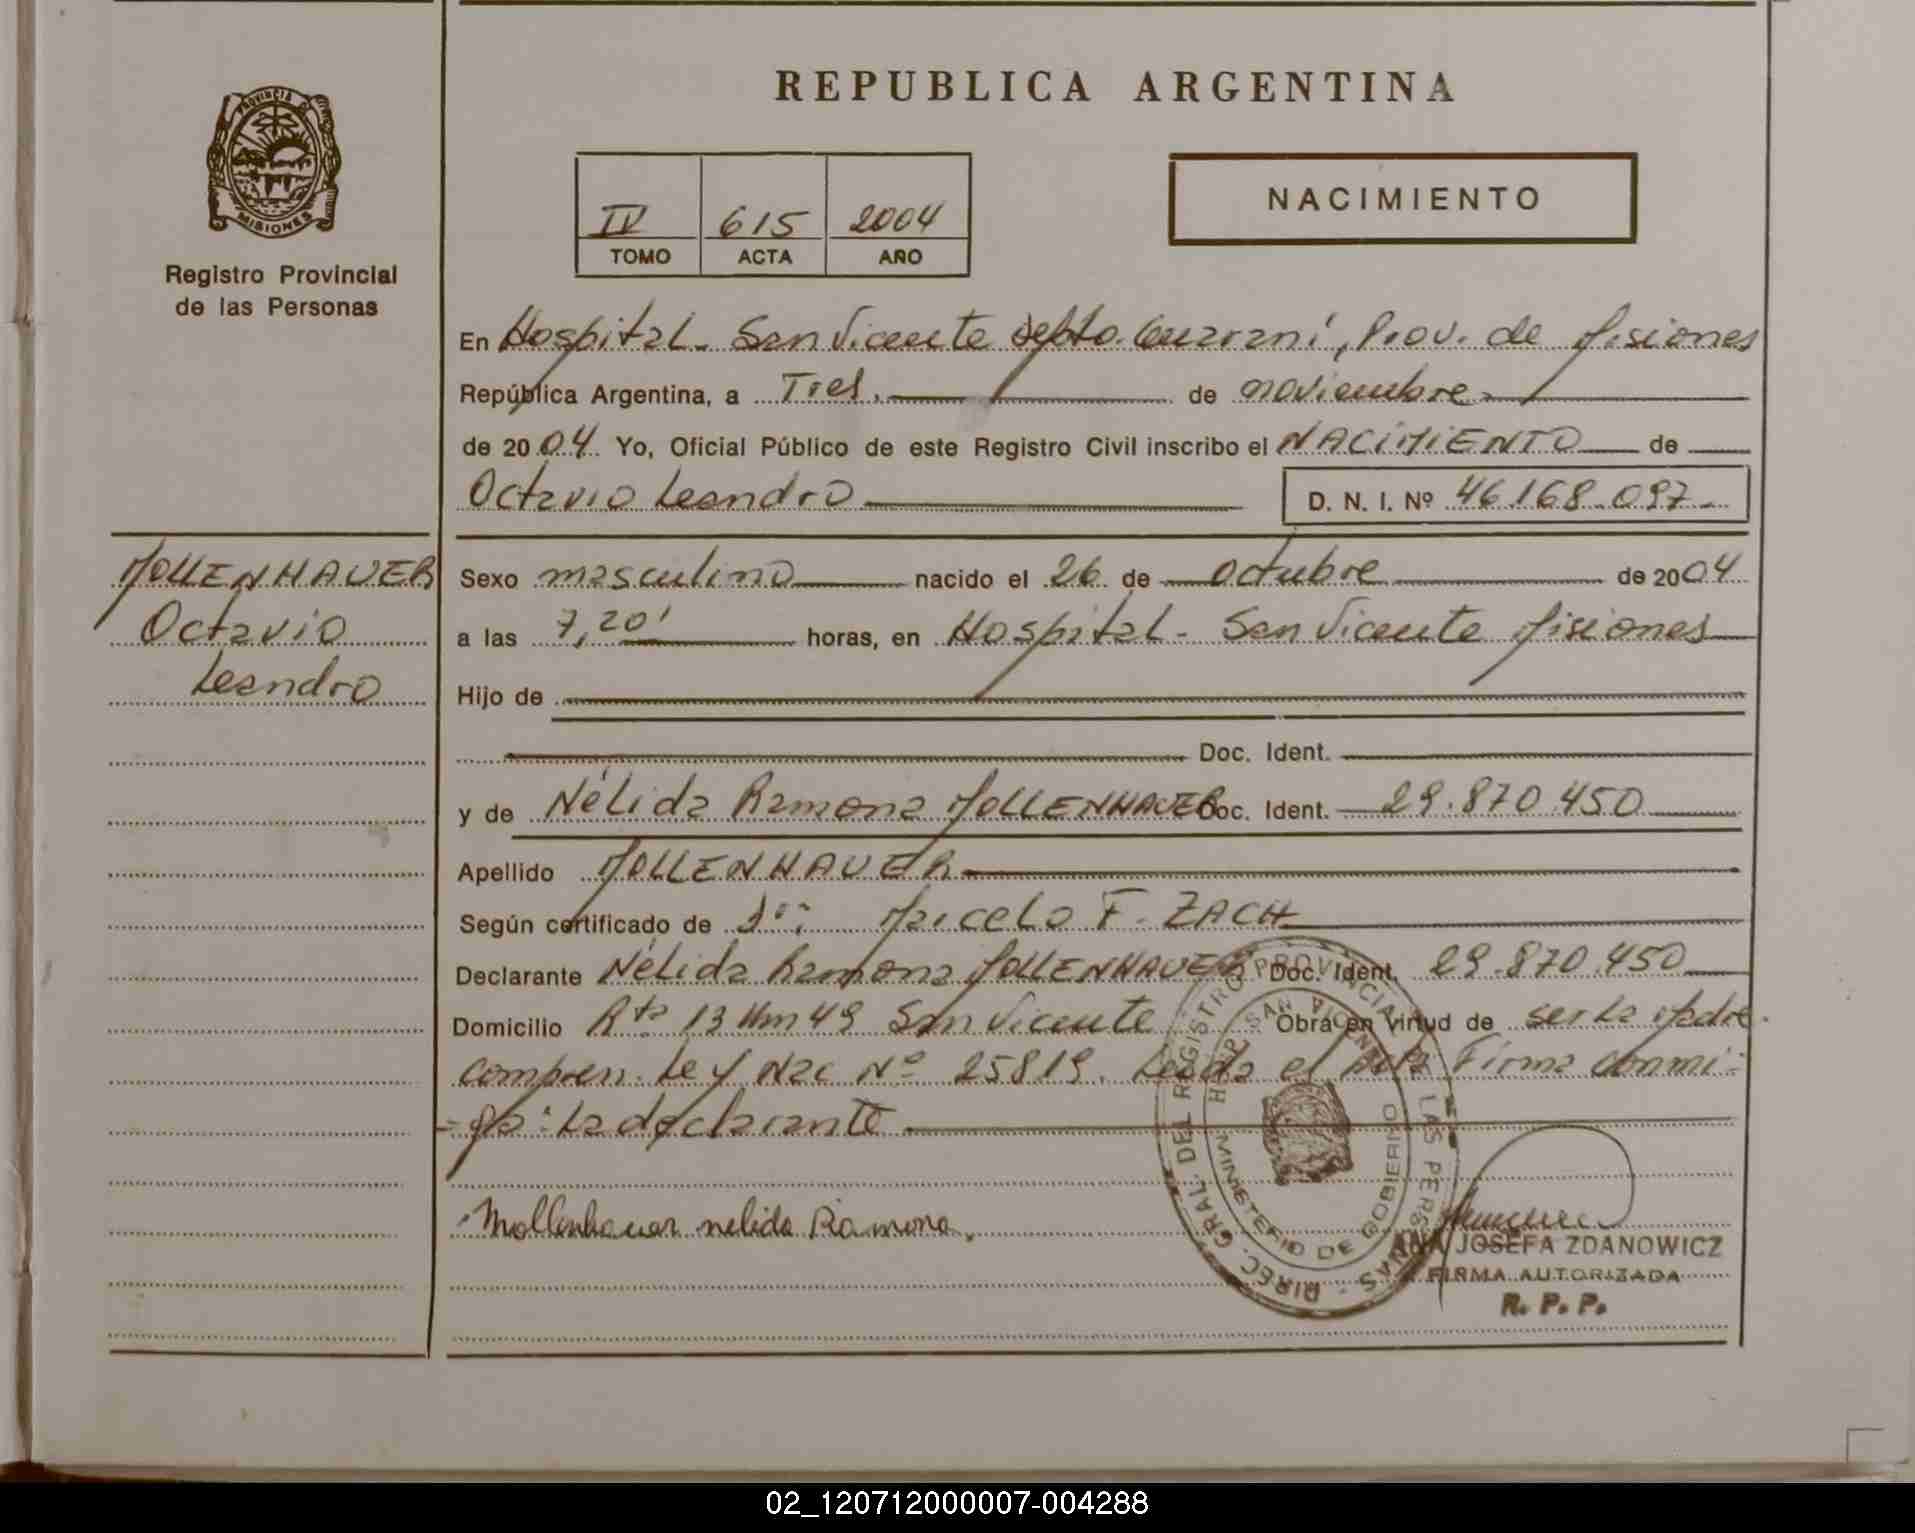 REPUBLICA ARGENTINA
PROVINCIA DE
MISIONES
Registro Provincial
de las Personas
IV 615 2004
TOMO ACTA AÑO
NACIMIENTO
En Hospital - San Vicente Depto. Guaraní, Prov. de Misiones
República Argentina, a Tres. de noviembre
de 2004 Yo, Oficial Público de este Registro Civil inscribo el NACIMIENTO de
Octavio Leandro D. N. I. Nº 46.168.097
MOLLENHAUER
Octavio
Leandro
Sexo masculino nacido el 26 de octubre de 2004
a las 7,20' horas, en Hospital - San Vicente Misiones
Hijo de
Doc. Ident.
y de Nélida Ramona MOLLENHAUER Doc. Ident. 29.870.450
Apellido MOLLENHAUER
Según certificado de Marcelo F. ZACH
Declarante Nélida Ramona MOLLENHAUER Doc. Ident. 29.870.450
Domicilio Rta 13 Km 49 San Vicente Obra en virtud de ser la Madre
compren. Ley Nac Nº 25819. Leída el Acta Firma conmi=
=go: La declarante
Mollenhauer nelida Ramona.
DIREC. GRAL. DEL REGISTRO PROVINCIAL DE LAS PERSONAS
HOSP. SAN VICENTE
MINISTERIO DE GOBIERNO
ANA JOSEFA ZDANOWICZ
FIRMA AUTORIZADA
R. P. P.
02_120712000007-004288